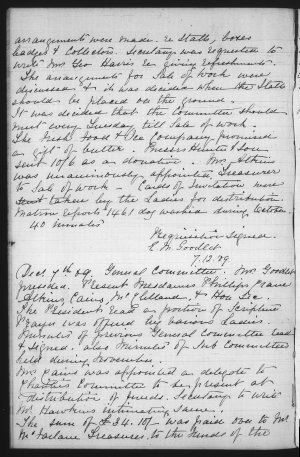 arrangements were made re Stalls, boxes
badges & Collectors. Secretary was requested to
write Mrs Geo Harris re giving refreshments.
The arrangements for Sale of Work were
discussed & it was decided when the Stalls
should be placed on the ground.
It was decided that the Committee should
meet every Tuesday till Sale of Work.
The Fresh Food & Ice Company promised
a gift of butter. Messrs Hunter & Son
sent 10/6 as a donation. Mrs
was unanimously appointed Treasurer
to Sale of Work - Cards of Invitation were
taken by the Ladies for distribution.
Matron reports 1461 day worked during October
40 inmates
Requisition Signed
E. M. Goodlet
7.12.09
Dec. 7th 09. General Committee. Mrs Goodlet
presided. Present Mesdames Phillips,
Cairns, McClelland, & Hon Sec.
The President read a portion of Scripture
Prayer was offered by various Ladies.
Minutes of previous General Committee read
& signed. also Minutes of Sub Committee
held during November.
Mrs Cairns was appointed a delegate to
Charities Committee to be present at
distribution of funds. Secretary to write
Mr Hawkins intimating same.
The sum of £34.10/- was paid over to Mr
McFarlane Treasurer to the funds of the